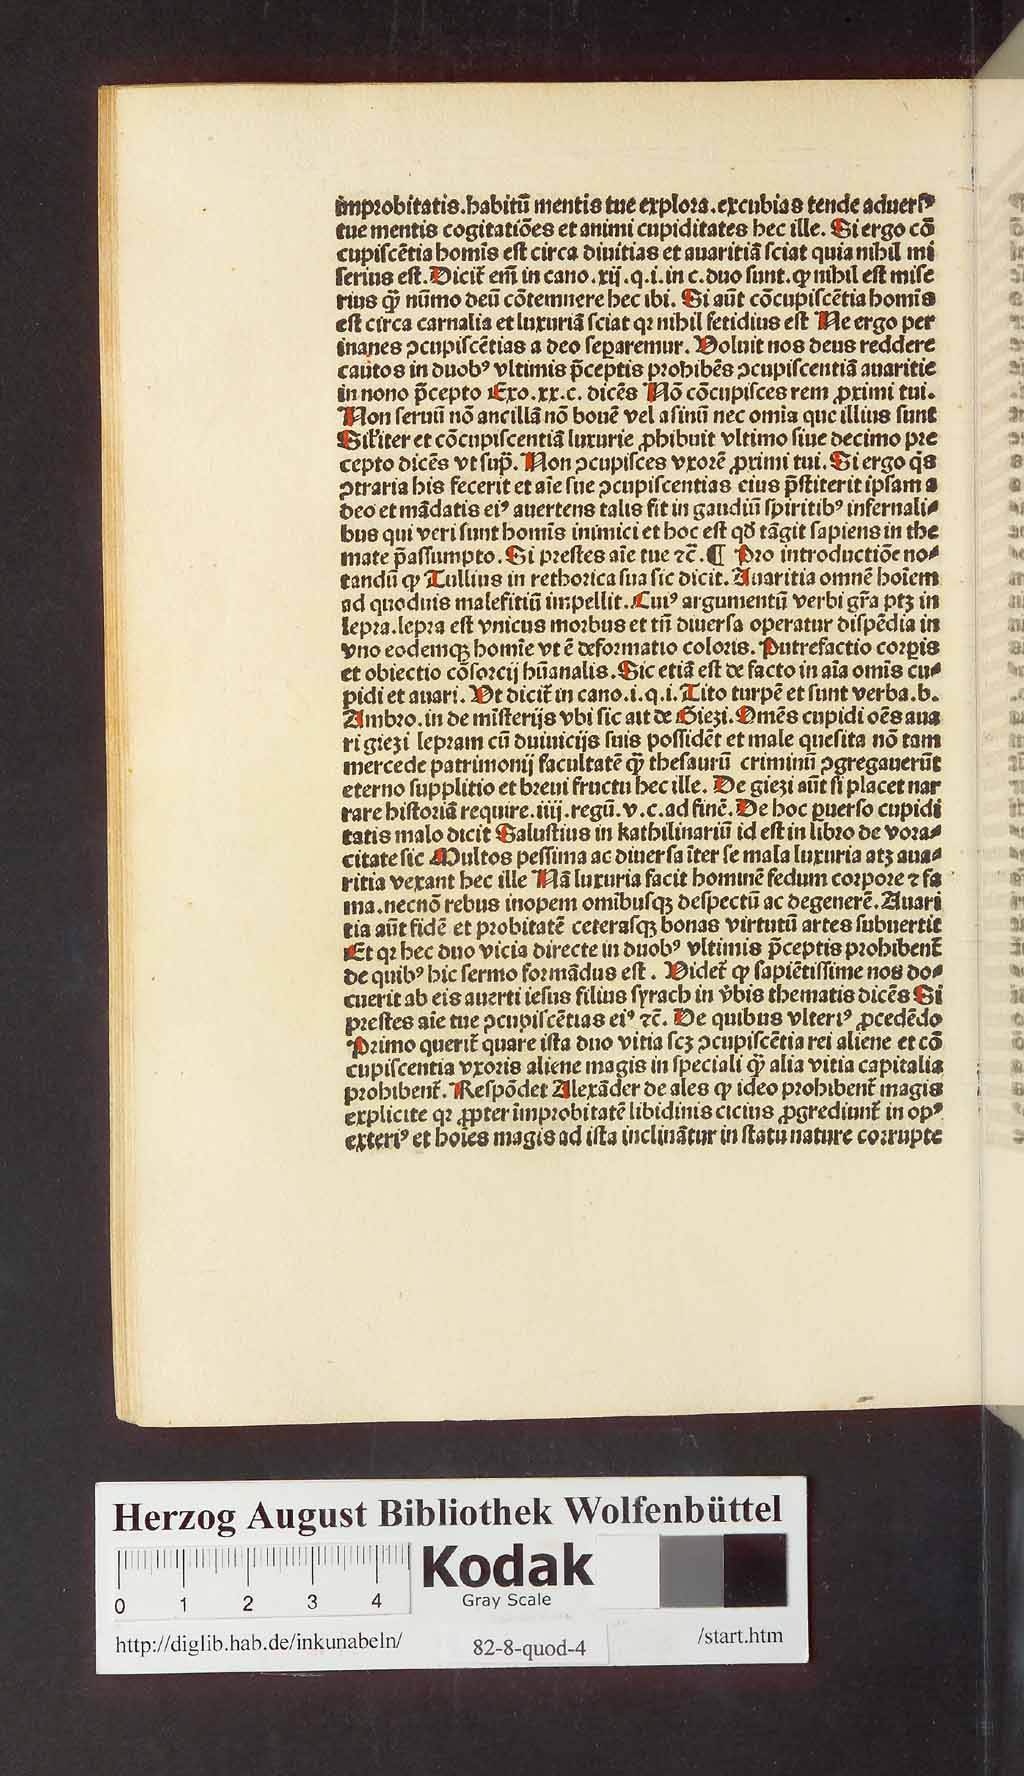 improbitatis.habitū mentis tue explora.excubias tende aduersꝰ
tue mentis cogitatiōes et animi cupiditates hec ille. Si ergo cō
cupiscētia homīs est circa diuitias et auaritiā sciat quia nihil mi
serius est. Dicit̄ em̄ in cano.xij.q.i.in c.duo sunt. ꝙ nihil est mise
rius q̄ȝ nūmo deū cōtemnere hec ibi. Si aūt cōcupiscētia homīs
est circa carnalia et luxuriā sciat qꝛ nihil fetidius est Ne ergo per
inanes ꝯcupiscētias a deo seꝑaremur. Voluit nos deus reddere
cautos in duobꝰ vltimis p̄ceptis prohibēs ꝯcupiscentiā auaritie
in nono p̄cepto Exo.xx.c. dicēs Nō cōcupisces rem ꝓximi tui.
Non seruū nō ancillā nō bouē vel asinū nec omīa que illius sunt
Sil'iter et cōcupiscentiā luxurie ꝓhibuit vltimo siue decimo pre
cepto dicēs vt sup̄. Non ꝯcupisces vxorē ꝓximi tui. Si ergo q̄s
ꝯtraria his fecerit et aīe sue ꝯcupiscentias eius p̄stiterit ipsam a
deo et mādatis eiꝰ auertens talis fit in gaudiū spiritibꝰ infernali⸗
bus qui veri sunt homīs inimici et hoc est qđ tāgit sapiens in the
mate p̄assumpto. Si prestes aīe tue ⁊c̄. ¶ Pro introductiōe no⸗
tandū ꝙ Tullius in rethorica sua sic dicit. Auaritia omnē hoīem
ad quoduis malefitiū impellit. Cuiꝰ argumentū verbi gr̄a ptȝ in
lepra.lepra est vnicus morbus et tn̄ diuersa operatur dispēdia in
vno eodemqȝ homīe vt ē deformatio coloris. Putrefactio corꝑis
et obiectio cōsorcij hūanalis. Sic etiā est de facto in aīa omīs cu⸗
pidi et auari. Vt dicit̄ in cano.i.q.i.Tito turpē et sunt verba.b.
Ambro.in de mīsterijs vbi sic ait de Giezi. Omēs cupidi oēs aua
ri giezi lepram cū duiuicijs suis possidēt et male quesita nō tam
mercede patrimonij facultatē q̄ȝ thesaurū criminū ꝯgregauerūt
eterno supplitio et breui fructu hec ille. De giezi aūt si placet nar
rare historiā require.iiij.regū.v.c.ad finē. De hoc ꝑuerso cupidi
tatis malo dicit Salustius in kathilinariū id est in libro de vora⸗
citate sic Multos pessima ac diuersa īter se mala luxuria atȝ aua⸗
ritia vexant hec ille Nā luxuria facit hominē fedum corpore ⁊ fa
ma.necnō rebus inopem omībusqȝ despectū ac degenerē. Auari
tia aūt fidē et probitatē ceterasqȝ bonas virtutū artes subuertit
Et qꝛ hec duo vicia directe in duobꝰ vltimis p̄ceptis prohibent̄
de quibꝰ hic sermo formādus est. Videt̄ ꝙ sapiētissime nos do⸗
cuerit ab eis auerti iesus filius syrach in v̄bis thematis dicēs Si
prestes aīe tue ꝯcupiscētias eiꝰ ⁊c̄. De quibus vlteriꝰ ꝓcedēdo
Primo querit̄ quare ista duo vitia scȝ ꝯcupiscētia rei aliene et cō
cupiscentia vxoris aliene magis in speciali q̄ȝ alia vitia capitalia
prohibent̄. Respōdet Alexāder de ales ꝙ ideo prohibent̄ magis
explicite qꝛ ꝓpter improbitatē libidinis cicius ꝓgrediunt̄ in opꝰ
exteriꝰ et hoīes magis ad ista inclināтur in statu nature corrupte
Herzog August Bibliothek Wolfenbüttel
Kodak
Gray Scale
0 1 2 3 4
http://diglib.hab.de/inkunabeln/ 82-8-quod-4 /start.htm